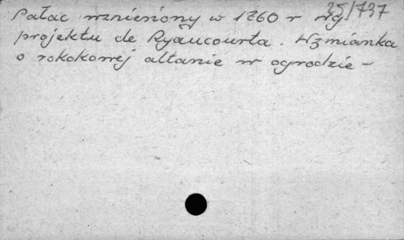 35/737
Pałac wzniesiony w 1760 r wg
projektu de Ryaucourta. Wzmianka
o rokokowej altanie w ogrodzie –